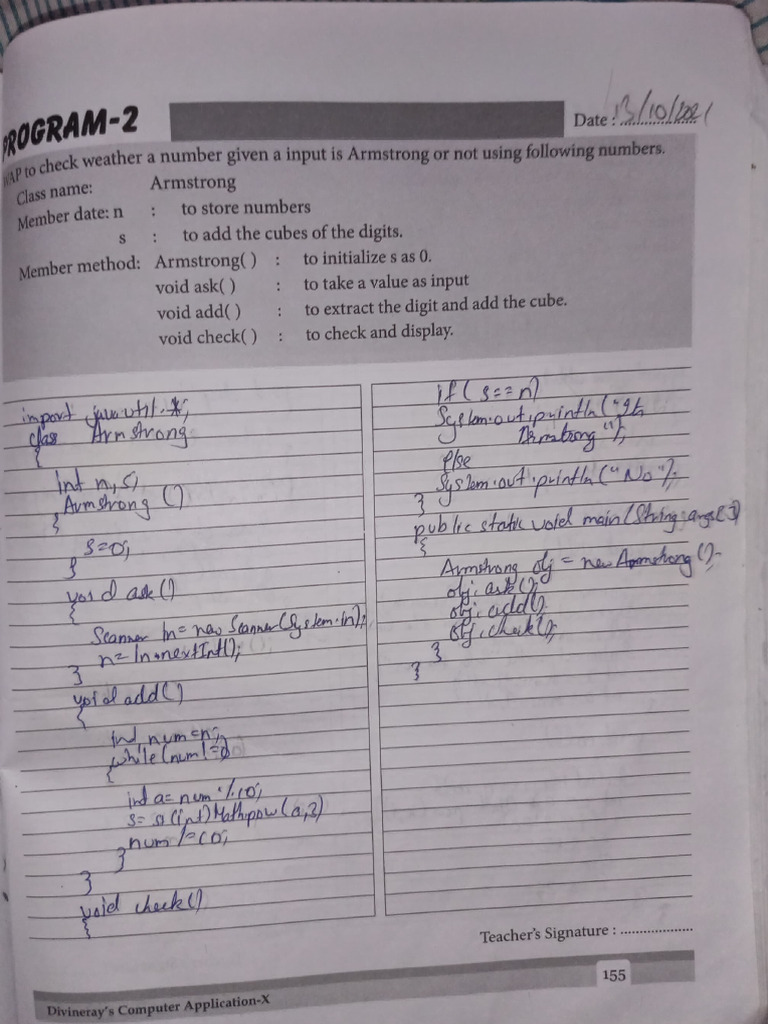 PROGRAM-2
Date : 13/10/2021
WAP to check weather a number given a input is Armstrong or not using following numbers.
Class name: Armstrong
Member date: n : to store numbers
s : to add the cubes of the digits.
Member method: Armstrong( ) : to initialize s as 0.
void ask( ) : to take a value as input
void add( ) : to extract the digit and add the cube.
void check( ) : to check and display.
import java.util.*;
class Armstrong
{
int n,s;
Armstrong ()
{
s=0;
}
void ask()
{
Scanner in= new Scanner(System.in);
n= in.nextInt();
}
void add()
{
int num=n;
while(num!=0
{
int a= num %10;
s= (int)Math.pow(a,3)
num /=10;
}
}
void check()
{
if( s==n)
System.out.println("Its
Armstrong");
else
System.out.println("No");
}
public static void main(String args[])
{
Armstrong obj = new Armstrong();
obj. ask();
obj. add()
obj. check();
}
}
Teacher's Signature : ...................
155
Divineray's Computer Application-X